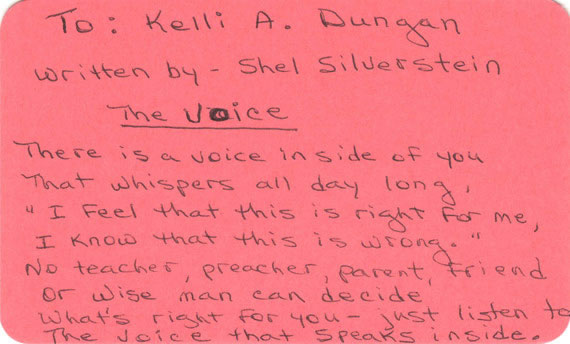 To: Kelli A. Dungan
written by - Shel Silverstein
The Voice
There is a voice inside of you
That whispers all day long,
"I feel that this is right for me,
I know that this is wrong."
No teacher, preacher, parent, friend
Or wise man can decide
What's right for you - just listen to
The voice that speaks inside.